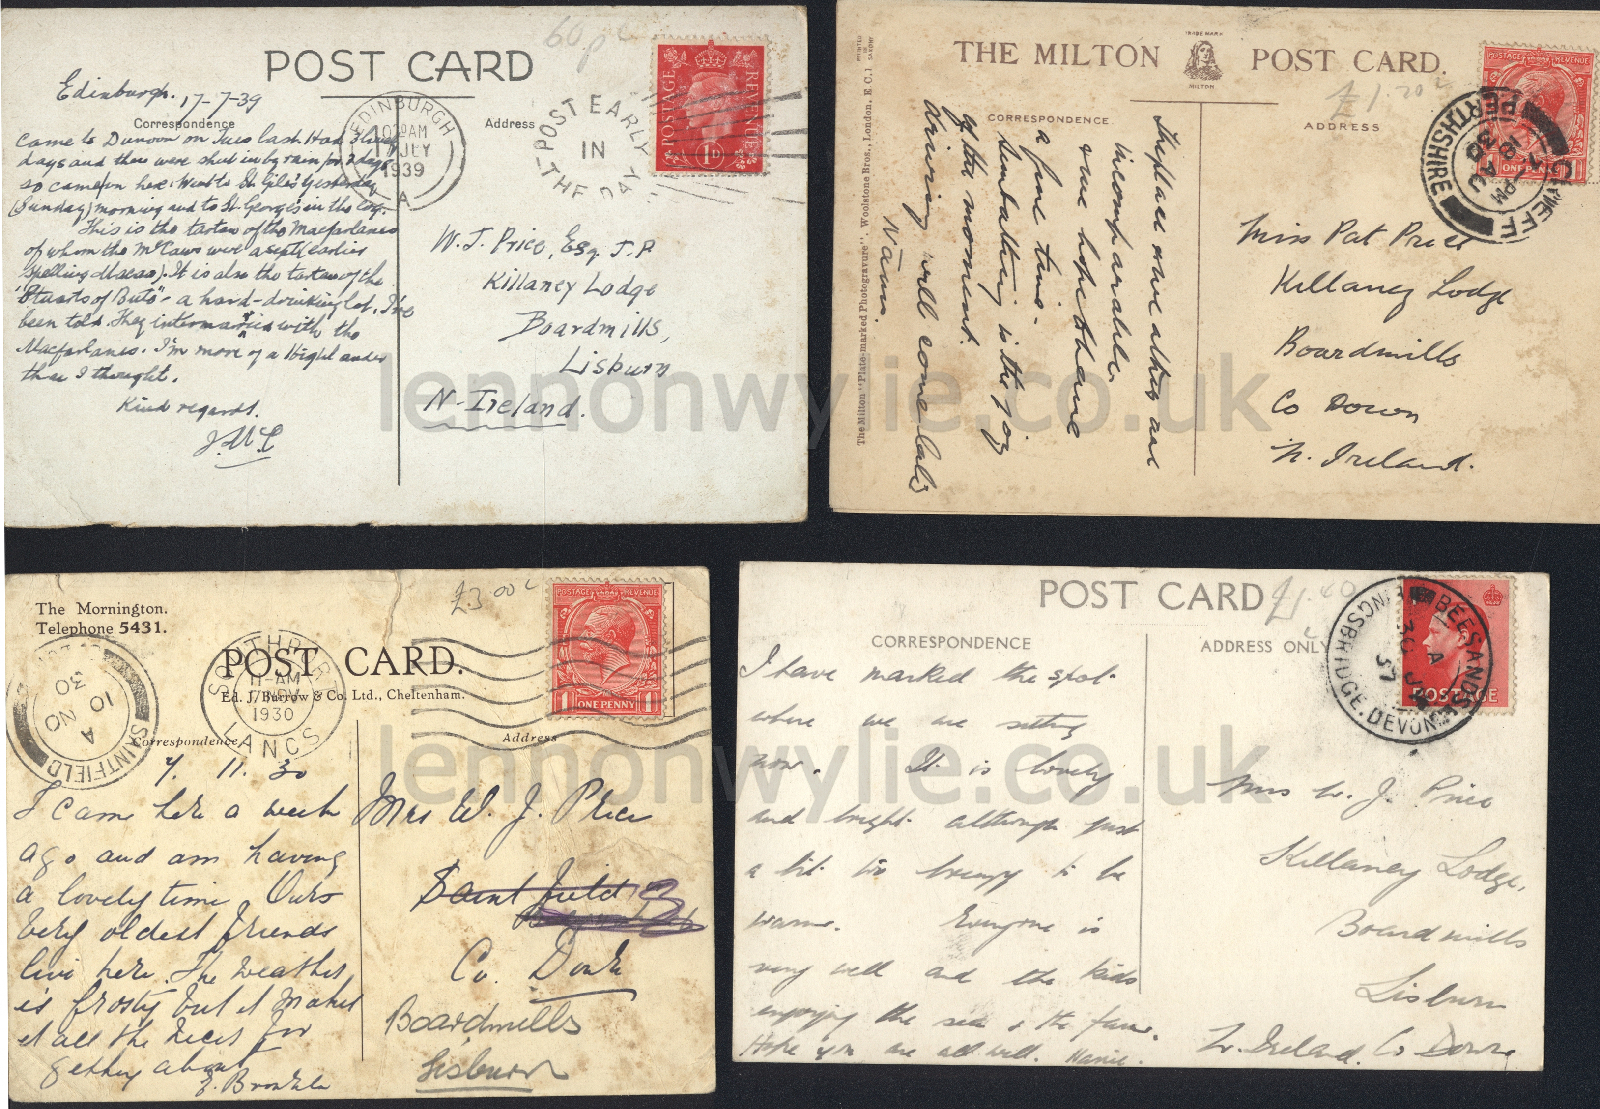 60p c
POST CARD
Edinburgh. 17-7-39
Correspondence
Address
EDINBURGH
10 AM
17 JLY
1939
A
POST EARLY
IN
THE DAY
POSTAGE
REVENUE
1D
came to Dunoon on Tues last. Had 3
days and there were shut in by rain for 2 days
so came on here. Went to St. Giles yesterday
(Sunday) morning and to St. George's in the
This is the tartan of the Macfarlanes
of whom the McCaws were a sept (earlier
spelling Macaa). It is also the tartan of the
"Stuarts of Bute" - a hard-drinking lot, I've
been told. They intermarried with the
Macfarlanes. I'm more of a Highlander
than I thought.
Kind regards.
J. McC
W. J. Price, Esq. J.P
Killaney Lodge
Boardmills,
Lisburn
N-Ireland.
THE MILTON
TRADE MARK
MILTON
POST CARD.
£1.20 c
CORRESPONDENCE.
ADDRESS
The Milton "Plate-marked Photogravure", Woolstone Bros., London, E.C.1
PRINTED IN SAXONY
POSTAGE REVENUE
ONE PENNY
CRIEFF
PERTHSHIRE
7 - PM
10 AU
30
The place and are
incomparable
and hope to have
a fine time.
Sunbathing is the joy
of the moment.
driving will come later
Nann.
Miss Pat Price
Killaney Lodge
Boardmills
Co Down
N. Ireland.
The Mornington.
Telephone 5431.
£3 00 c
POST CARD.
Ed. J. Burrow & Co. Ltd., Cheltenham.
Correspondence
Address
SAINTFIELD
A
10 NO
30
SOUTHPORT
LANCS
11-AM
NOV
1930
POSTAGE REVENUE
1 ONE PENNY 1
7. 11. 30
I came here a week
ago and am having
a lovely time. Ours
very oldest friends
live here. The weather
is frosty but it makes
it all the nicer for
getting about
E.
Mrs W. J. Price
Saintfield
Co. Down
Boardmills
Lisburn
POST CARD
£1.40
c
CORRESPONDENCE
ADDRESS ONLY
BEESANDS
KINGSBRIDGE. DEVON
A
30 JU
37
POSTAGE
I have marked the spot
where we are sitting
now. It is lovely
and bright although just
a bit too breezy to be
warm. Everyone is
very well and the kids
enjoying the sea & the farm.
Hope you are all well. Nannie.
Mrs W. J. Price
Killaney Lodge,
Boardmills
Lisburn
N. Ireland. Co Down
lennonwylie.co.uk
lennonwylie.co.uk